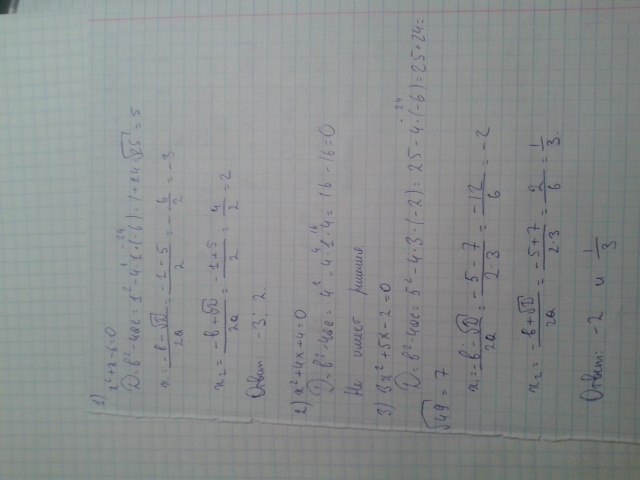 1) x²+x-6=0
D=b²-4ac=1²-4·1·(-6)=1+24 √25=5
x₁=(-b-√D)/2a=(-1-5)/2=-6/2=-3
x₂=(-b+√D)/2a=(-1+5)/2=4/2=2
Ответ: -3; 2
2) x²+4x+4=0
D=b²-4ac=4²-4·1·4=16-16=0
Не имеет решения
3) 3x²+5x-2=0
D=b²-4ac=5²-4·3·(-2)=25-4·(-6)=25+24=
√49=7
x₁=(-b-√D)/2a=(-5-7)/2·3=-12/6=-2
x₂=(-b+√D)/2a=(-5+7)/2·3=2/6=1/3.
Ответ: -2 и 1/3